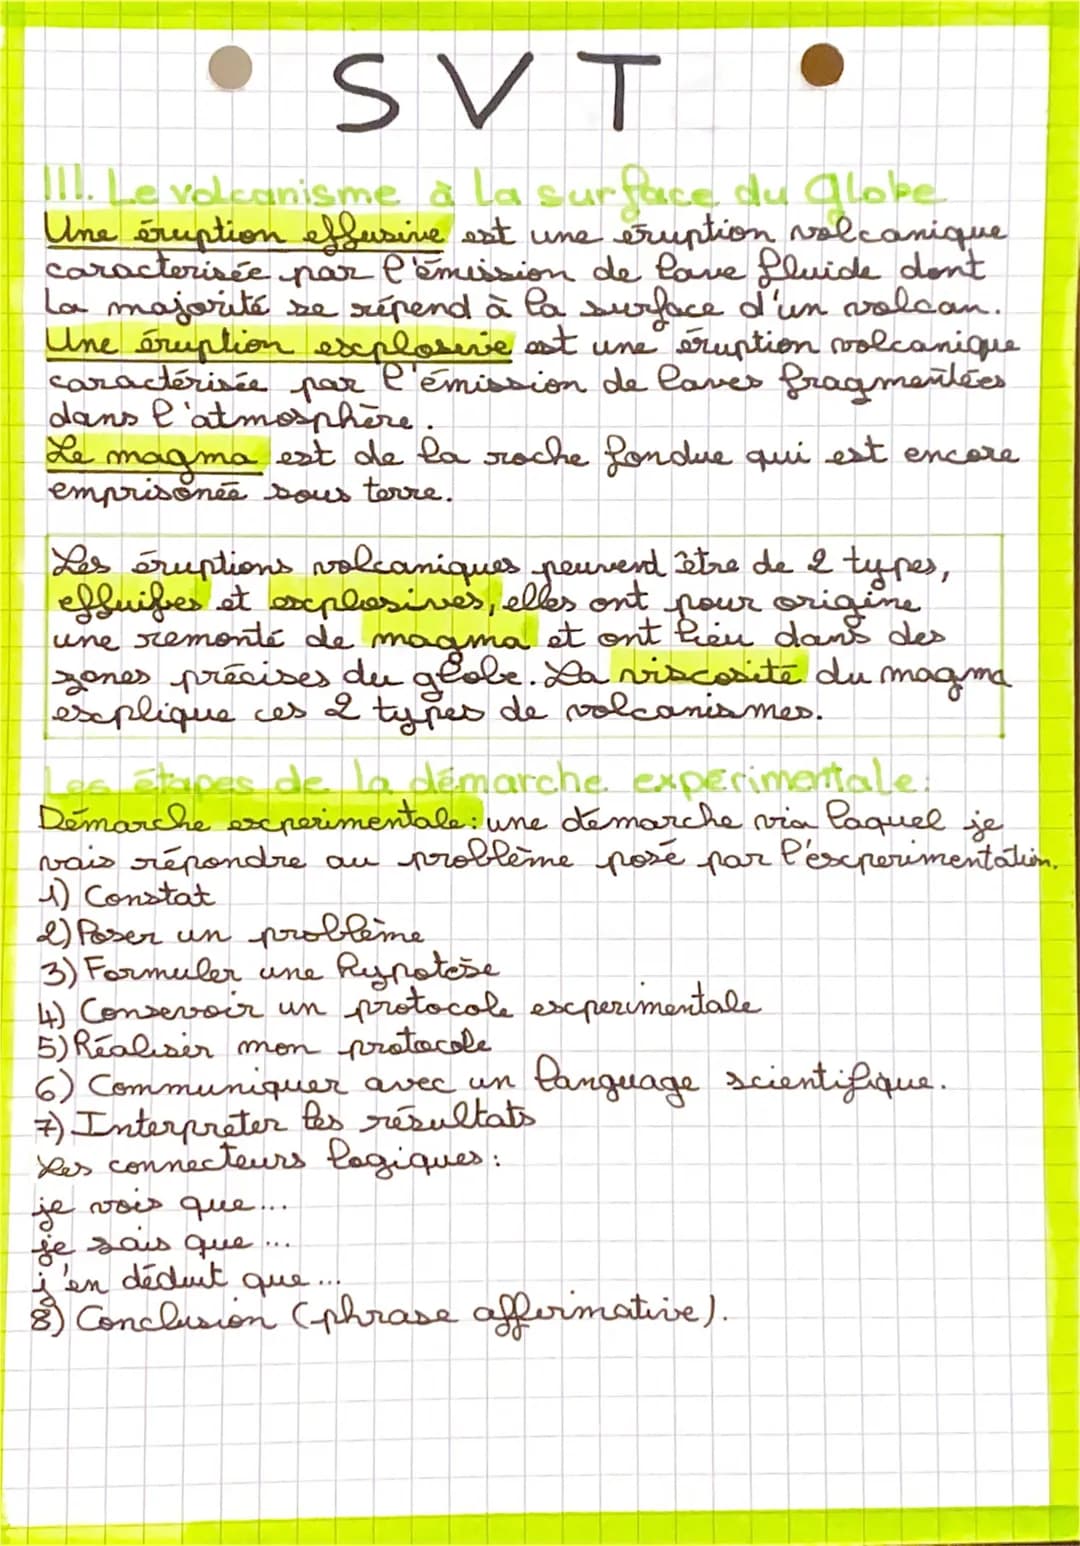 SVT
III. Le volcanisme à la surface du Globe
Une éruption effusive est une éruption volcanique
caracterisée par l'émission de lave fluide dont
la majorité se répend à la surface d'un volcan.
Une éruption explosive est une éruption volcanique
caractérisée par l'émission de laves fragmentées
dans l'atmosphère.
Le magma est de la roche fondue qui est encore
emprisonée sous terre.
Les éruptions volcaniques peuvend être de 2 types,
effuifes et explosives, elles ont pour origine
une remonté de magma et ont lieu dans des
zones précises du globe. La viscosité du magma
explique ces 2 types de volcanismes.
Les étapes de la démarche experimentale:
Démarche experimentale: une démarche via laquel je
vais répondre au problème posé par l'experimentation.
1) Constat
2) Poser un problème
3) Formuler une hypotèse
4) Consevoir un protocole experimentale
5) Réaliser mon protocole
6) Communiquer avec un language scientifique.
7) Interpréter les résultats
Les connecteurs logiques:
je vois que...
je sais que...
j'en déduit que...
8) Conclusion (phrase affirmative).